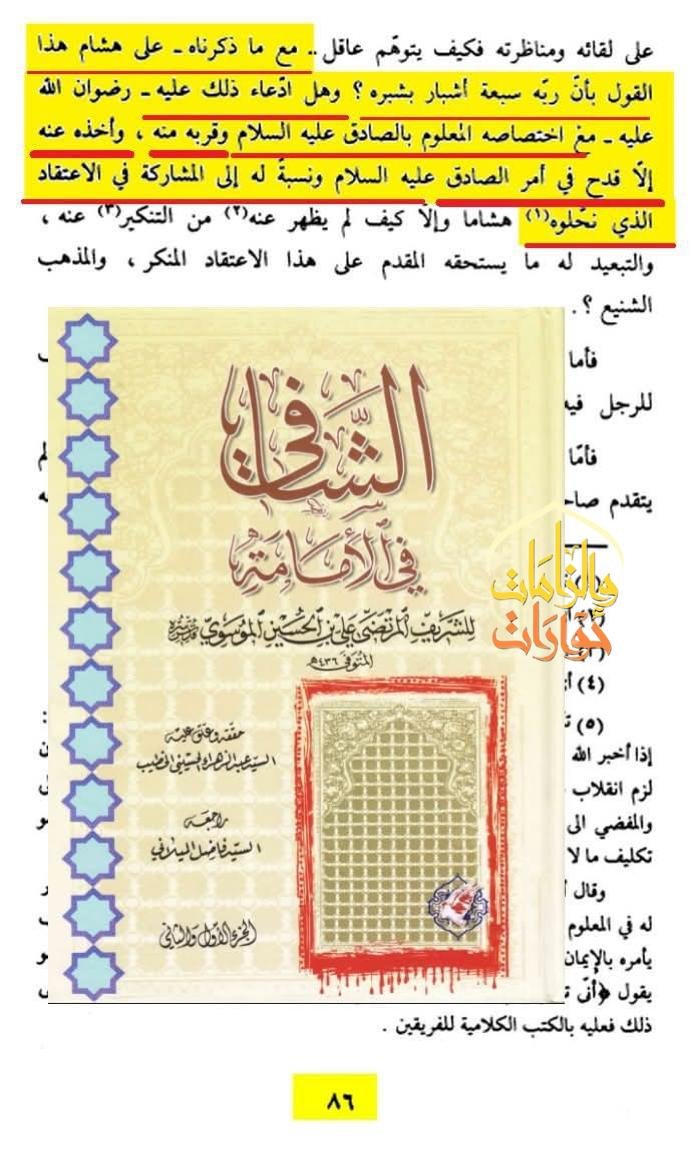 على لقائه ومناظرته فكيف يتوهّم عاقل .. مع ما ذكرناه ـ على هشام هذا
القول بأنّ ربّه سبعة أشبار بشبره ؟ وهل ادّعاء ذلك عليه ـ رضوان الله
عليه ـ مع اختصاصه المعلوم بالصادق عليه السلام وقربه منه ، وأخذه عنه
إلّا قدح في أمر الصادق عليه السلام ونسبةً له إلى المشاركة في الاعتقاد
الذي نحّلوه(١) هشاما وإلّا كيف لم يظهر عنه(٢) من التنكير(٣) عنه ،
والتبعيد له ما يستحقه المقدم على هذا الاعتقاد المنكر ، والمذهب
الشنيع ؟ .
فأما
للرجل فيه
فأمّا
يتقدم صاح
الشّافي
في الأمامة
للشريف المرتضى علي بن الحسين الموسوي
المتوفى ٤٣٦هـ
حوارات
والزامات
حققه وعلق عليه
السيد عبد الزهراء الحسيني الخطيب
راجعه
السيد فاضل الميلاني
الجزء الأول والثاني
(٤)
(٥)
إذا أخبر الله
لزم انقلاب
والمفضي الى
تكليف ما لا
وقال
له في المعلوم
يأمره بالإيمان
يقول ﴿أنّى
ذلك فعليه بالكتب الكلامية للفريقين .
٨٦